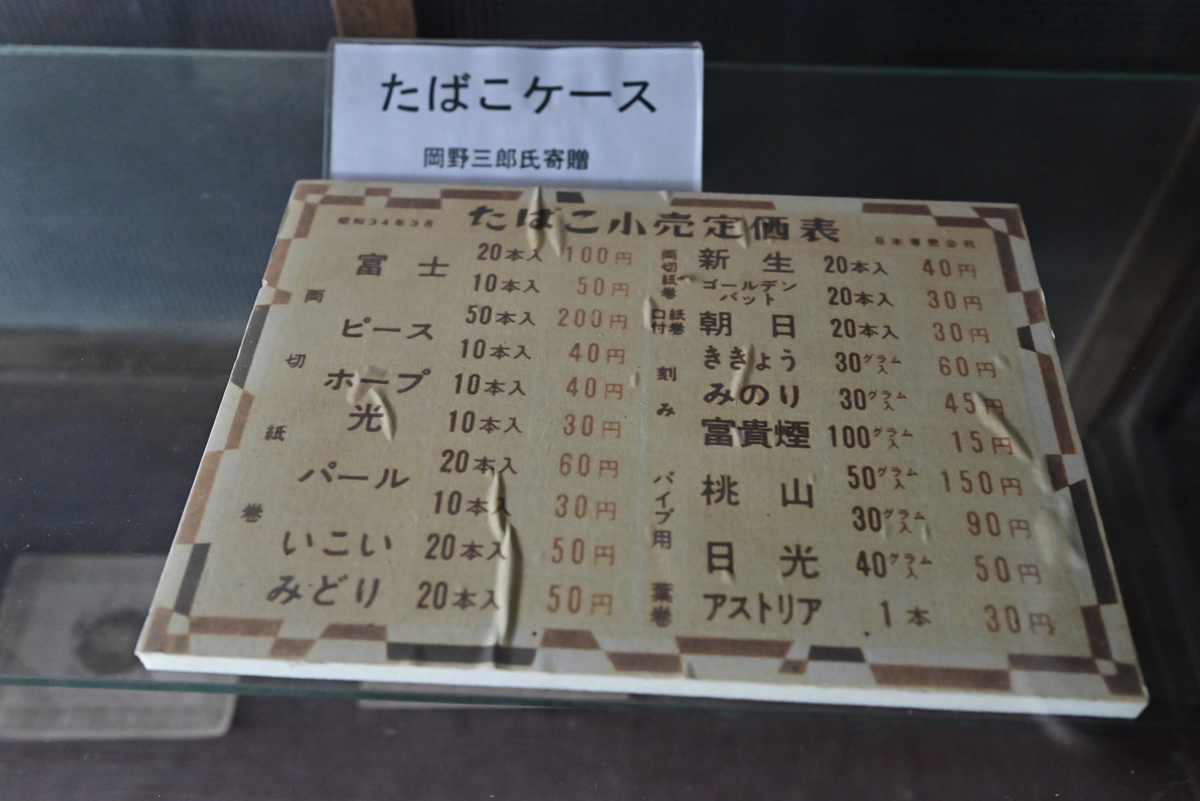 たばこケース
岡野三郎氏寄贈
昭和34年3月 たばこ小売定価表 日本専売公社
両切紙巻
富士 20本入 100円
10本入 50円
ピース 50本入 200円
10本入 40円
ホープ 10本入 40円
光 10本入 30円
パール 20本入 60円
10本入 30円
いこい 20本入 50円
みどり 20本入 50円
両切紙巻
新生 20本入 40円
ゴールデンバット 20本入 30円
口付紙巻
朝日 20本入 30円
刻み
ききょう 30グラム入 60円
みのり 30グラム入 45円
富貴煙 100グラム入 15円
パイプ用
桃山 50グラム入 150円
30グラム入 90円
日光 40グラム入 50円
葉巻
アストリア 1本 30円